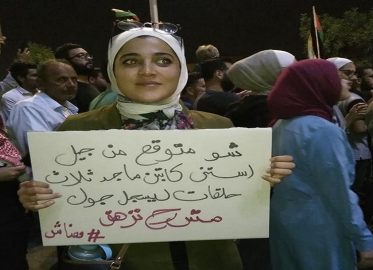 شو متوقع من جيل
استنى كابتن ماجد ثلاث
حلقات ليجيب جول
مش رح نزهق
#معناش